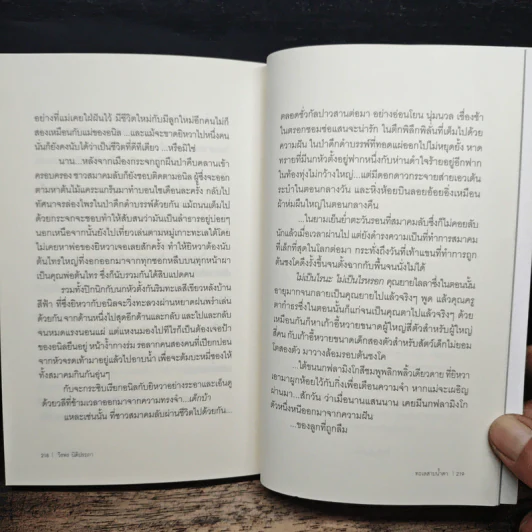 อย่างที่แม่เคยใฝ่ฝันไว้ มีชีวิตใหม่กับมีลูกใหม่อีกคนไม่ก็
สองเหมือนกับแม่ของอนิล ...และแม้จะขาดยิหวาไปหนึ่งคน
นั่นก็ยังคงนับได้ว่าเป็นชีวิตที่ดีทีเดียว ...หรือมิใช่
นาน...หลังจากเมืองกระจกถูกผืนป่าคืบคลานเข้า
ครอบครอง ชาวสมาคมลับก็ยังรอบติดตามอนิล ผู้ซึ่งจะออก
ตามหาต้นไม้แคระแกร็นมาทำบอนไซเดือนละครั้ง กลับไป
ทัศนาจรล่องไพรในป่าดึกดำบรรพ์ด้วยกัน แม้ถนนเต็มไป
ด้วยกระจกจะชอบทำให้สับสนว่ามันเป็นลำธารอยู่บ่อยๆ
นอกเหนือจากนั้นยังไปเที่ยวเล่นตามหมู่เกาะทะเลใต้โดย
ไม่เคยหาพ่อของยิหวาเจอเลยสักครั้ง ทำให้ยิหวาต้องนับ
ต้นไทรใหญ่ที่งอกออกมาจากซอกหลืบบนทุกหน้าผา
เป็นคุณพ่อต้นไทร ซึ่งก็นับรวมกันได้สิบแปดคน
รวมทั้งปิกนิกกับนกหัวตั้งกันริมทะเลสีเขียวหลังบ้าน
สีฟ้า ที่ซึ่งยิหวากับอนิลจะวิ่งทะลวงผ่านหยาดฝนพรำเล่า
ด้วยกัน จากด้านหนึ่งไปสุดอีกด้านและกลับ และไปและกลับ
จนหมดแรงนอนแผ่ แต่แหงนมองไปทีไรก็เป็นต้องเจอป้า
ของอนิลยืนอยู่ หน้าง้ำกางร่ม รอลากคนสองคนที่เปียกปอน
จากหัวจรดเท้ามาอยู่แล้วไปอาบน้ำ เพื่อจะต้มบะหมี่ซองให้
ทั้งสมาคมกินกันอุ่นๆ
กับจะกระซิบเรียกอนิลกับยิหวาอย่างระอาและเอ็นดู
ด้วยวลีที่ข้ามเวลาออกมาจากความทรงจำ...เด็กบ้า
แหละเช่นนั้น ที่ชาวสมาคมลับผ่านชีวิตไปด้วยกัน...
218 | วีรพร นิติประภา
ตลอดชั่วกัลปาวสานต่อมา อย่างอ่อนโยน นุ่มนวล เชื่องช้า
ในตรอกซอมซ่อแสนจะน่ารัก ในตึกพิลึกพิลั่นที่เต็มไปด้วย
ความฝัน ในป่าดึกดำบรรพ์ที่ทอดแผ่ออกไปไม่หยุดยั้ง หาด
ทรายที่มีนกหัวตั้งอยู่ฟากหนึ่งกับห่านดำใจร้ายอยู่อีกฟาก
ในท้องทุ่งไม่กว้างใหญ่...แต่มีดอกดาวกระจายส่ายเอวเต้น
ระบำในตอนกลางวัน และหิ่งห้อยบินลอยอ้อยอิ่งเหมือน
ผ้าห่มผืนใหญ่ในตอนกลางคืน
...ในยามเย็นย่ำตะวันรอนที่สมาคมลับซึ่งก็ไม่ค่อยลับ
นักแล้วเมื่อเวลาผ่านไป แต่ยังดำรงความเป็นที่ทำการสมาคม
ที่เล็กที่สุดในโลกต่อมา กระทั่งถึงวันที่เท้าแขนที่ทำการถูก
ต้นชงโคดึงรั้งขึ้นจนตั้งฉากกับพื้นจนนั่งไม่ได้
ไม่เป็นไรนะ ไม่เป็นไรหรอก คุณยายไลลาซึ่งในตอนนั้น
อายุมากจนกลายเป็นคุณยายไปแล้วจริงๆ พูด แล้วคุณครู
ดาก๋าธรซึ่งในตอนนั้นก็แก่จนเป็นคุณตาไปแล้วจริงๆ ด้วย
เหมือนกันก็หาเก้าอี้หวายขนาดผู้ใหญ่สี่ตัวสำหรับผู้ใหญ่
สี่คน กับเก้าอี้หวายขนาดเด็กสองตัวสำหรับสัตว์เด็กไม่ยอม
โตสองตัว มาวางล้อมรอบต้นชงโค
...ใต้ขนนกฟลามิงโกสีชมพูพลิกพลิ้วเดียวดาย ที่ยิหวา
เอามาผูกห้อยไว้กับกิ่งเพื่อเตือนความจำ หากแม่จะเผอิญ
ผ่านมา...สักวัน ว่าเมื่อนานแสนนาน เคยมีนกฟลามิงโก
ตัวหนึ่งหนีออกมาจากความฝัน
...ของลูกที่ถูกลืม
ทะเลสาบน้ำตา | 219